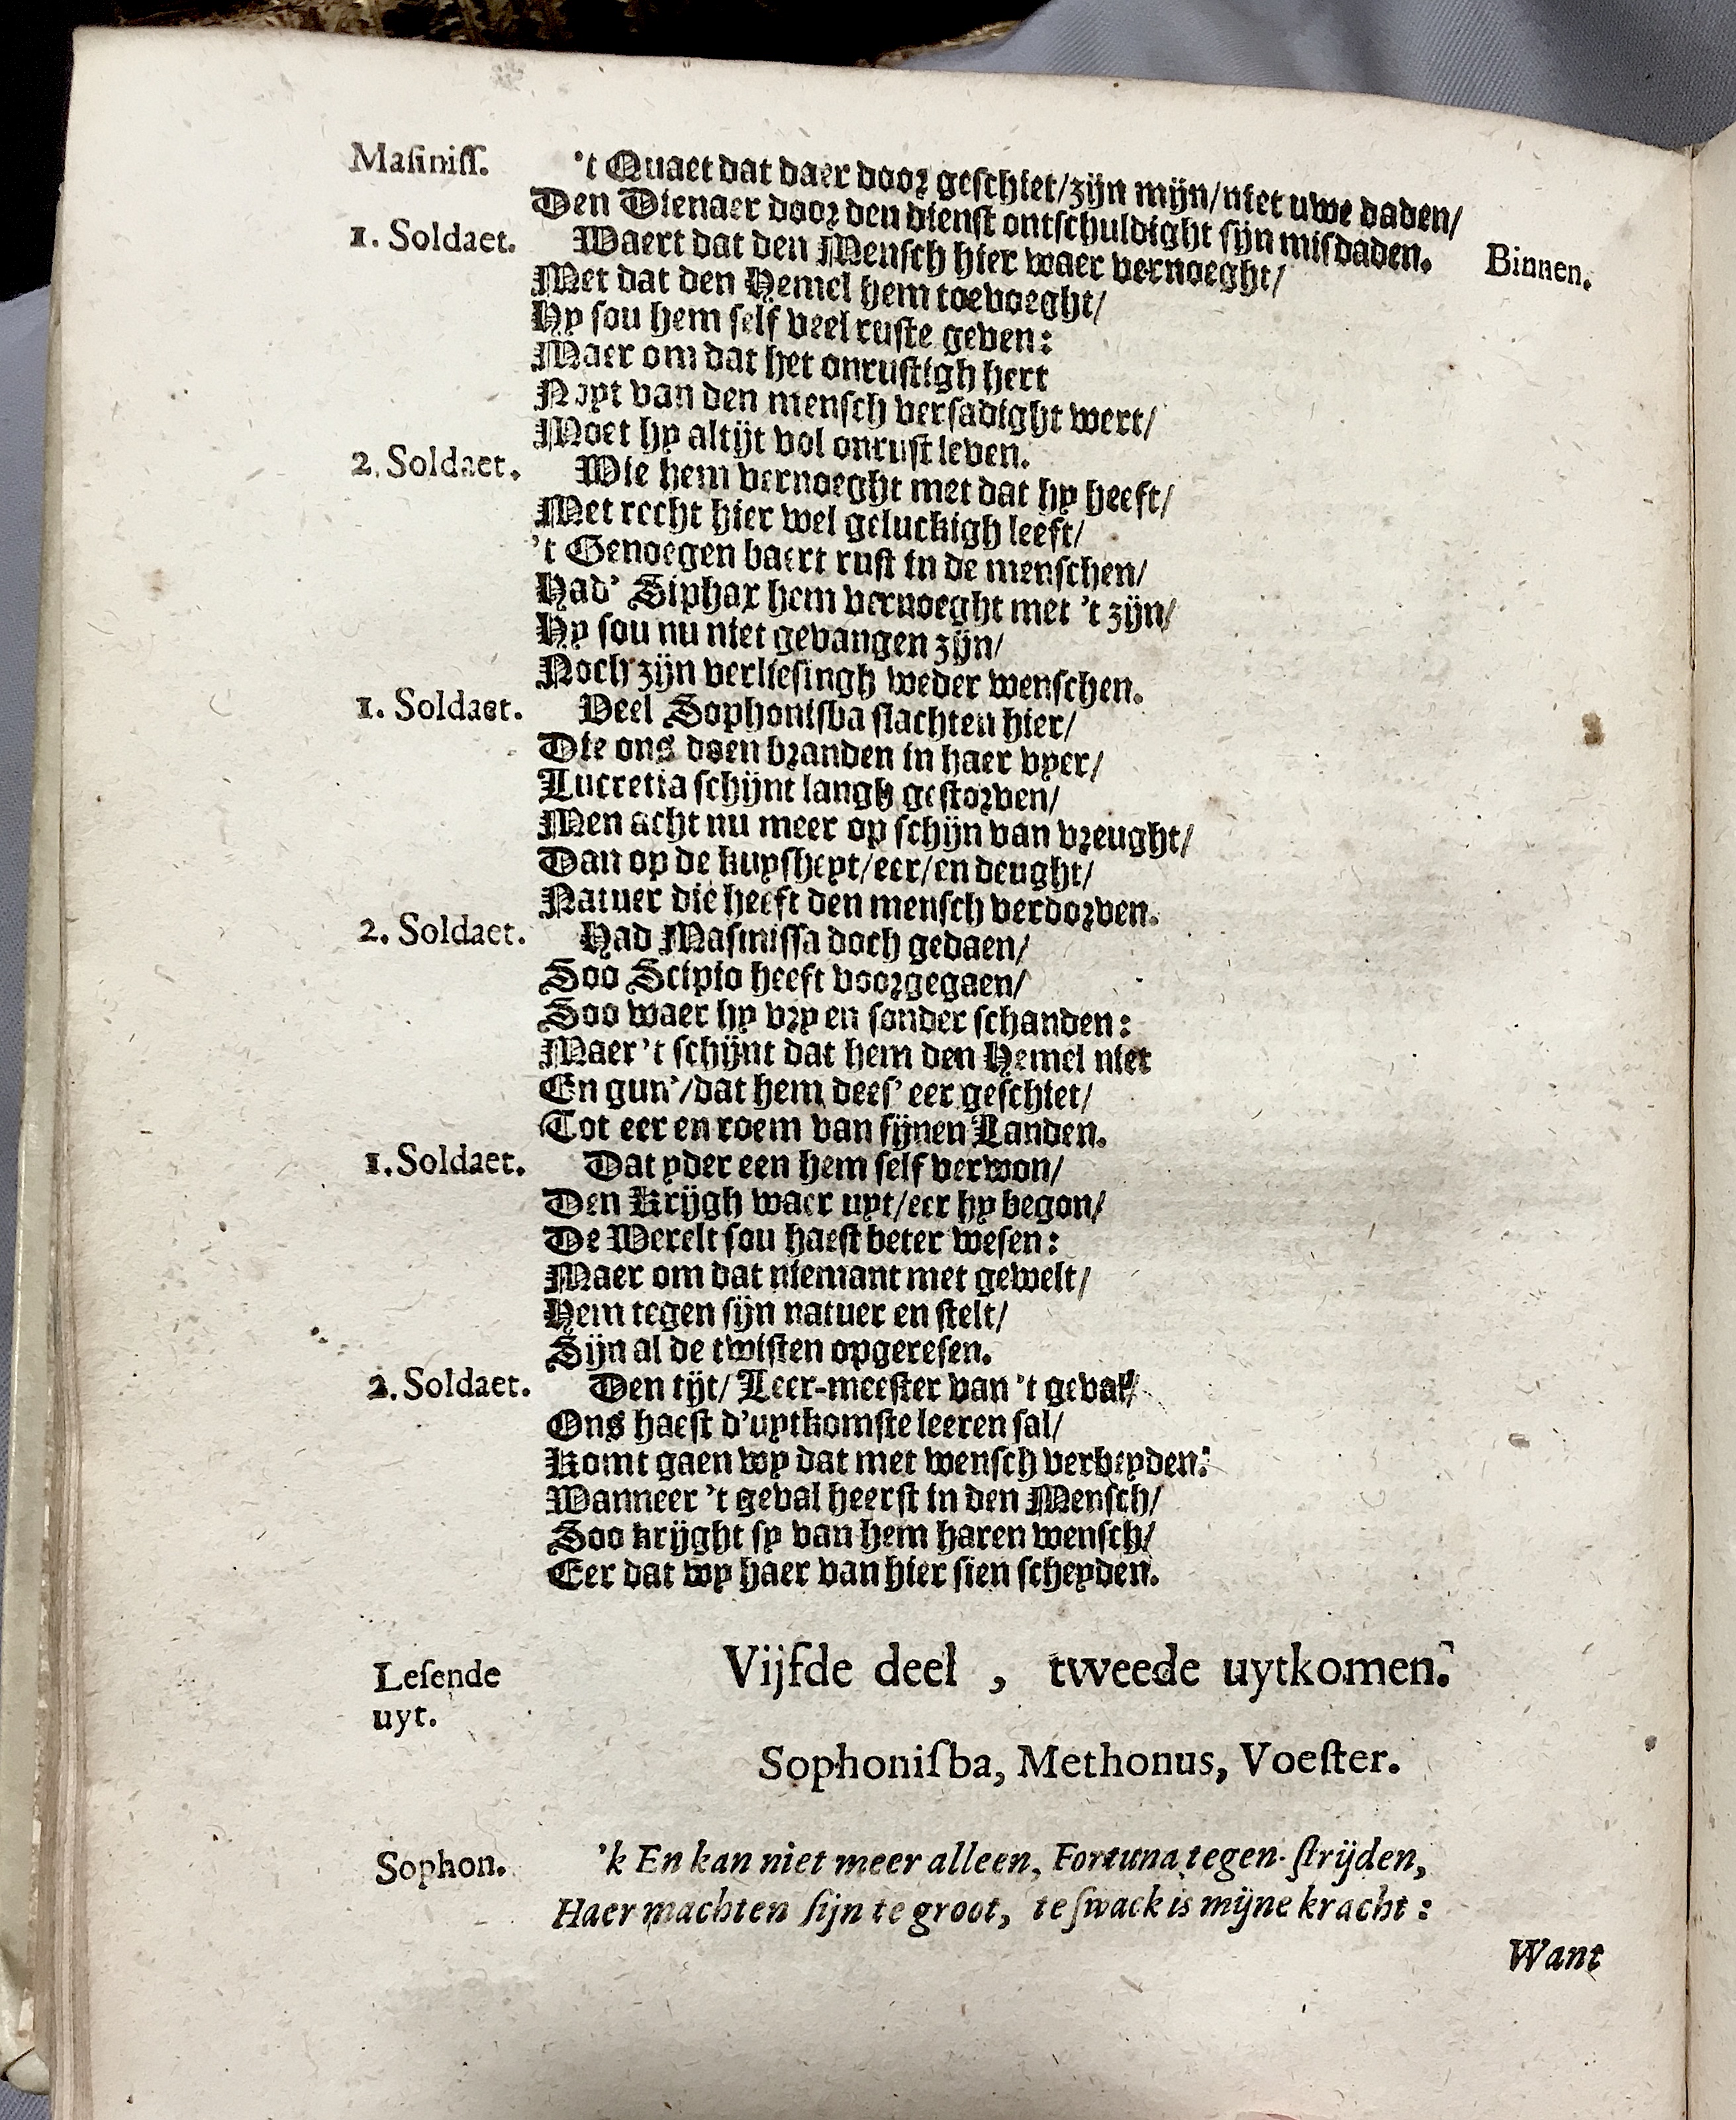 Masiniss. 't Quaet dat daer door geschiet/zijn mijn/niet uwe daden/
Den Dienaer door den dienst ontschuldight sijn misdaden. Binnen.
1. Soldaet. Waert dat den Mensch hier waer vernoeght/
Met dat den Hemel hem toevoeght/
Hy sou hem self veel ruste geven:
Maer om dat het onrustigh hert
Noyt van den mensch versadight wert/
Moet hy altijt vol onrust leven.
2. Soldaet. Wie hem vernoeght met dat hy heeft/
Met recht hier wel geluckigh leeft/
't Genoegen baert rust in de menschen/
Had' Siphax hem vernoeght met 't zijn/
Hy sou nu niet gevangen zijn/
Noch zijn verliesingh weder wenschen.
1. Soldaet. Veel Sophonisba slachten hier/
Die ons doen branden in haer vyer/
Lucretia schijnt langh gestorven/
Men acht nu meer op schijn van vreught/
Dan op de kuysheyt/eer/en deught/
Natuer die heeft den mensch verdorven.
2. Soldaet. Had Masinissa doch gedaen/
Soo Scipio heeft voorgegaen/
Soo waer hy vry en sonder schanden:
Maer 't schijnt dat hem den Hemel niet
En gun'/dat hem dees' eer geschiet/
Tot eer en roem van sijnen Landen.
1. Soldaet. Dat yder een hem self verwon/
Den Krijgh waer uyt/eer hy begon/
De Werelt sou haest beter wesen:
Maer om dat niemant met gewelt/
Hem tegen sijn natuer en stelt/
Sijn al de twisten opgeresen.
2. Soldaet. Den tijt/ Leer-meester van 't geval/
Ons haest d'uytkomste leeren sal/
Komt gaen wy dat met wensch verbeyden:
Wanneer 't geval heerst in den Mensch/
Soo krijght sy van hem haren wensch/
Eer dat wy haer van hier sien scheyden.
Lesende
uyt.
Vijfde deel, tweede uytkomen.
Sophonisba, Methonus, Voester.
Sophon. 'k En kan niet meer alleen, Fortuna tegen-strijden,
Haer machten sijn te groot, te swack is mijne kracht:
Want